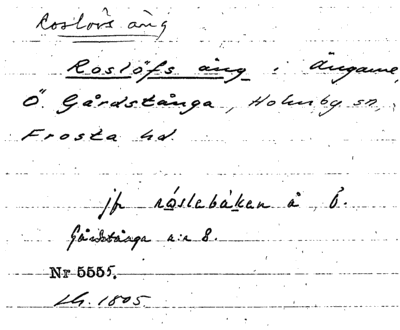 Roslöfs äng
Roslöfs äng i Ängarne,
Ö. Gårdstånga, Holmby sn,
Frosta hd.
jfr råslebåken å Ö.
Gårdstånga n:r 8.
Nr 5555.
Lh. 1805